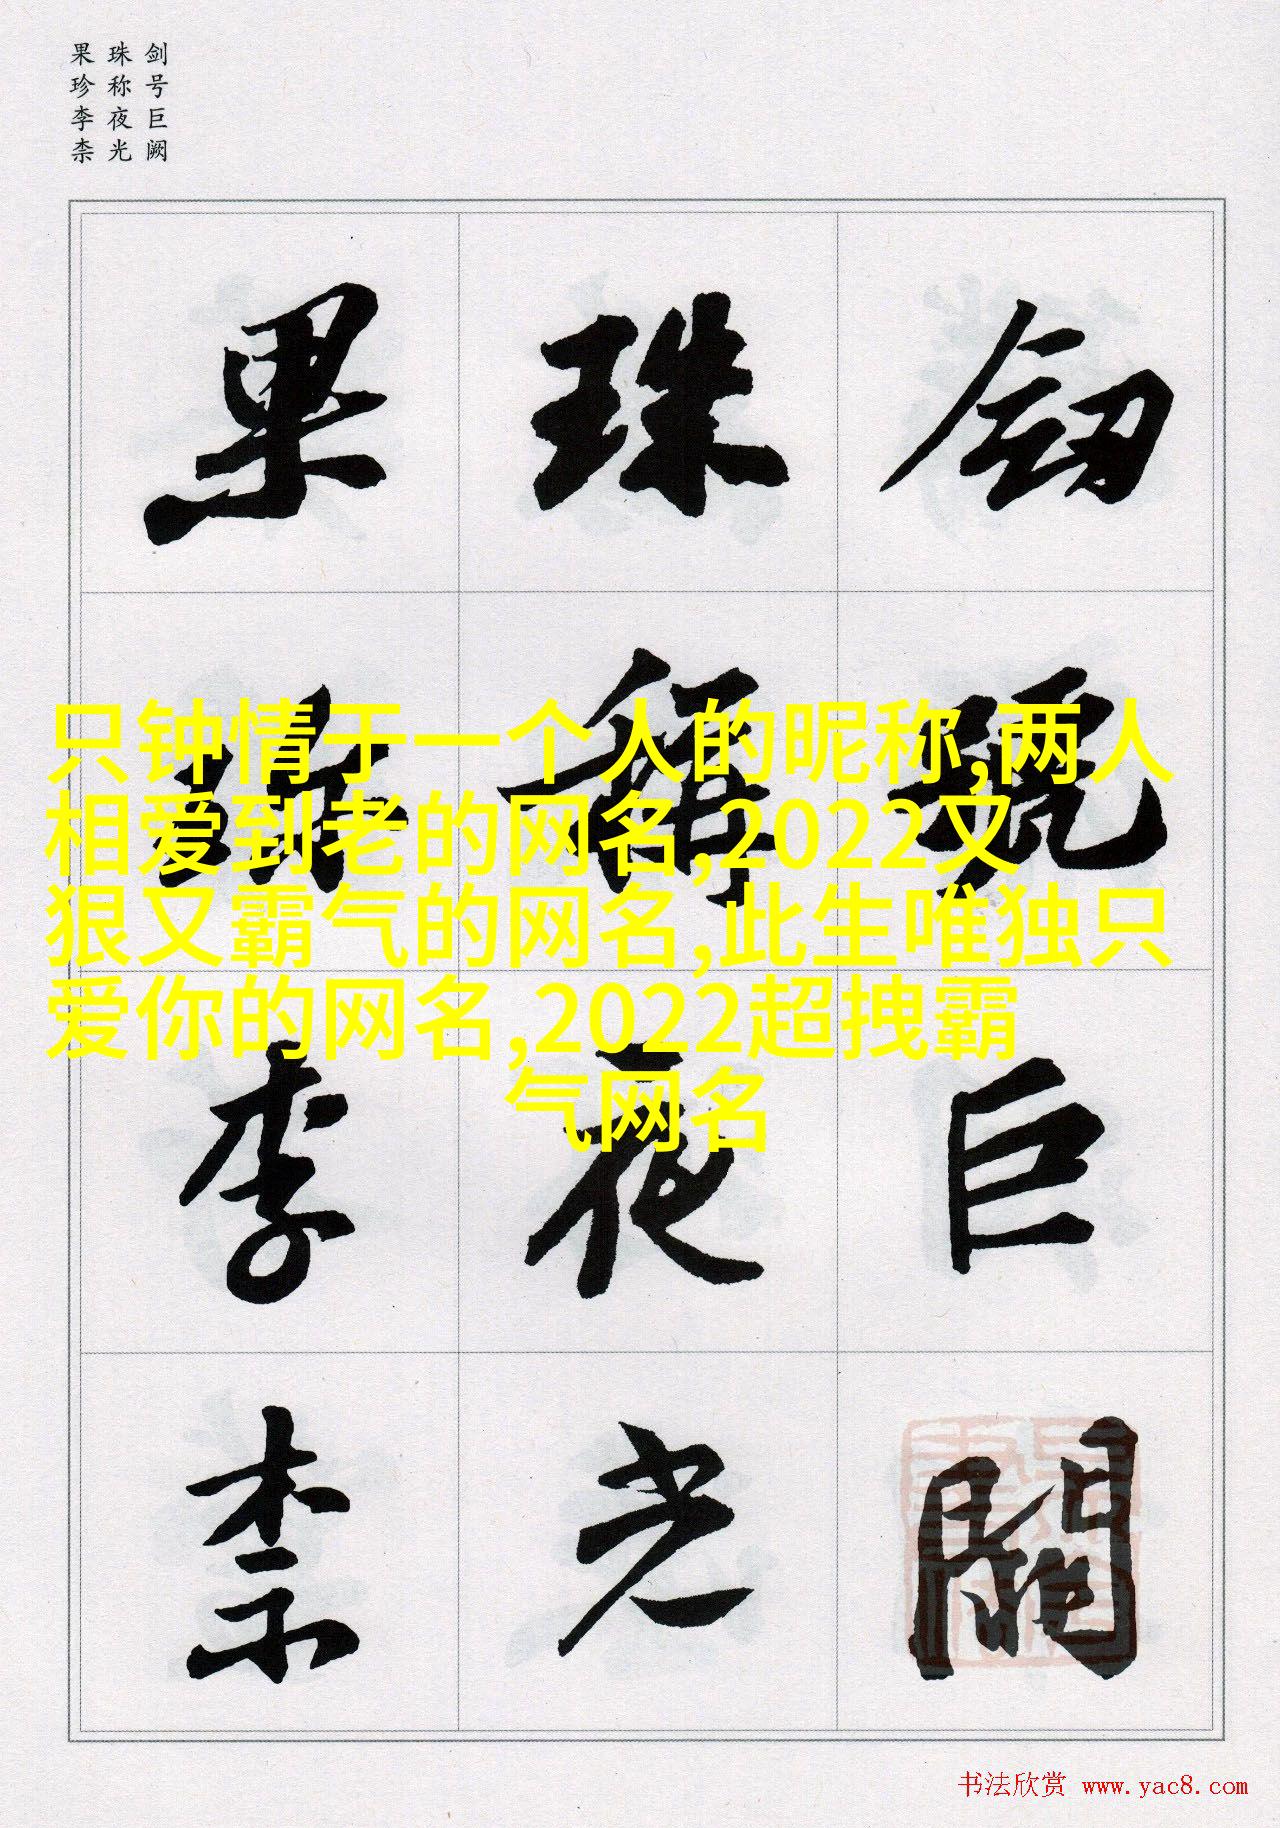 剑号巨阙
珠称夜光
果珍李柰
釼號巨闕
珠稱夜光
果珍李柰
只钟情于一个人的昵称,两人
相爱到老的网名,2022又
狠又霸气的网名,此生唯独只
爱你的网名,2022超拽霸
气网名
书法欣赏 www.yac8.com